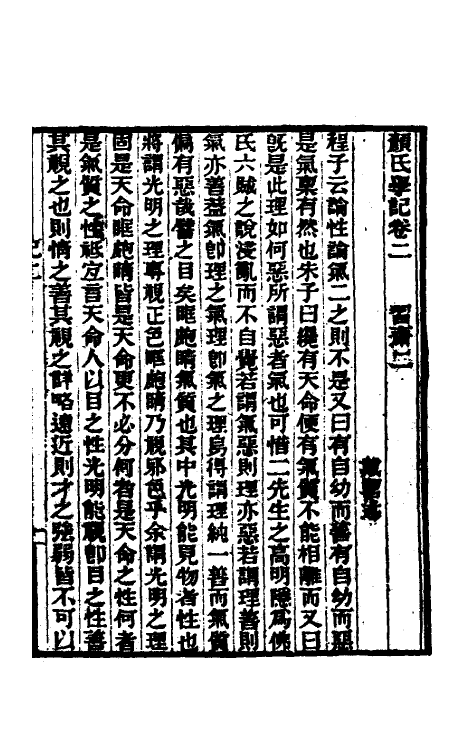 顏氏學記卷二　習齋二
戴望述
程子云論性論氣二之則不是又曰有自幼而善有自幼而惡
是氣稟有然也朱子曰纔有天命便有氣質不能相離而又曰
旣是此理如何惡所謂惡者氣也可惜二先生之高明隱爲佛
氏六賊之說浸亂而不自覺若謂氣惡則理亦惡若謂理善則
氣亦善蓋氣卽理之氣理卽氣之理烏得謂理純一善而氣質
偏有惡哉譬之目矣眶皰睛氣質也其中光明能見物者性也
將謂光明之理專視正色眶皰睛乃視邪色乎余謂光明之理
固是天命眶皰睛皆是天命更不必分何者是天命之性何者
是氣質之性祗宜言天命人以目之性光明能視卽目之性善
其視之也則情之善其視之詳略遠近則才之強弱皆不可以